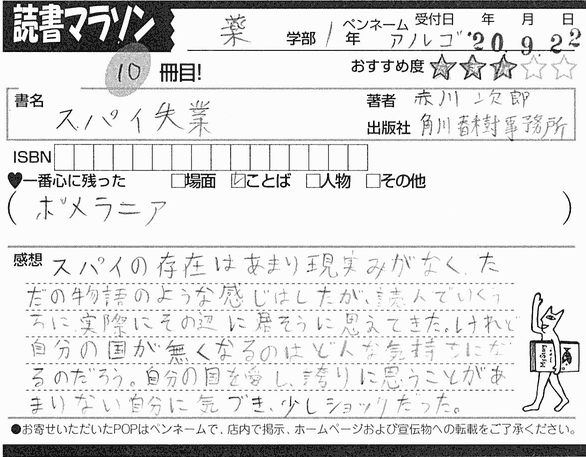 読書マラソン
薬 学部 1 年 ペンネーム アルゴ 受付日 年 月 日 '20.9.22
10 冊目! おすすめ度 ★★★☆☆
書名 スパイ失業
著者 赤川次郎
出版社 角川春樹事務所
ISBN
♥一番心に残った □場面 ☑ことば □人物 □その他
(ポメラニア)
感想 スパイの存在はあまり現実みがなく、た
だの物語のような感じはしたが、読んでいくう
ちに、実際にその辺に居そうに思えてきた。けれど
自分の国が無くなるのはどんな気持ちにな
るのだろう。自分の国を愛し、誇りに思うことがあ
まりない自分に気づき、少しショックだった。
Mystery
●お寄せいただいたPOPはペンネームで、店内で掲示、ホームページおよび宣伝物への転載をご了承ください。